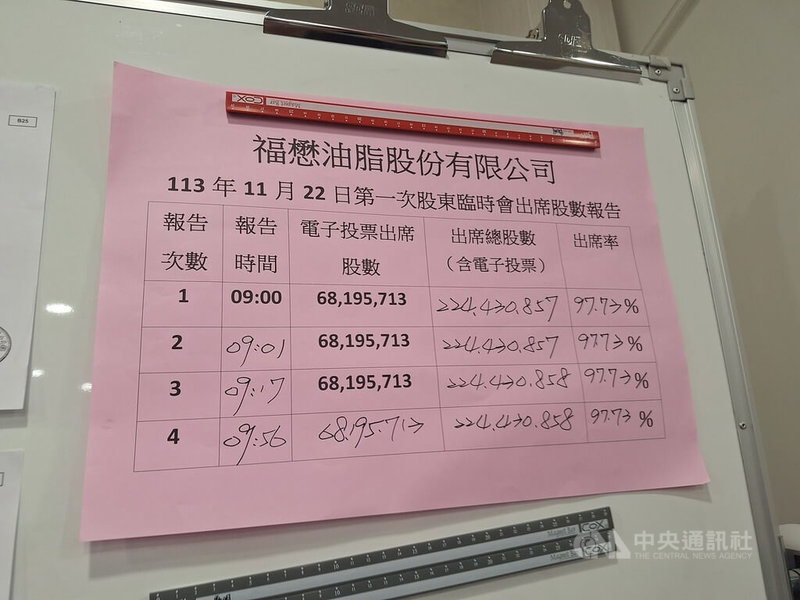 B25
COX
Magnet Bar
福懋油脂股份有限公司
113 年 11 月 22 日第一次股東臨時會出席股數報告
報告次數 報告時間 電子投票出席股數 出席總股數（含電子投票） 出席率
1 09:00 68,195,713 224.430.857 97.73%
2 09:01 68,195,713 224.430.857 97.73%
3 09:17 68,195,713 224.430.858 97.73%
4 09:56 68.195.713 224.430.858 97.73%
Magnet Bar COX
中央通訊社
THE CENTRAL NEWS AGENCY